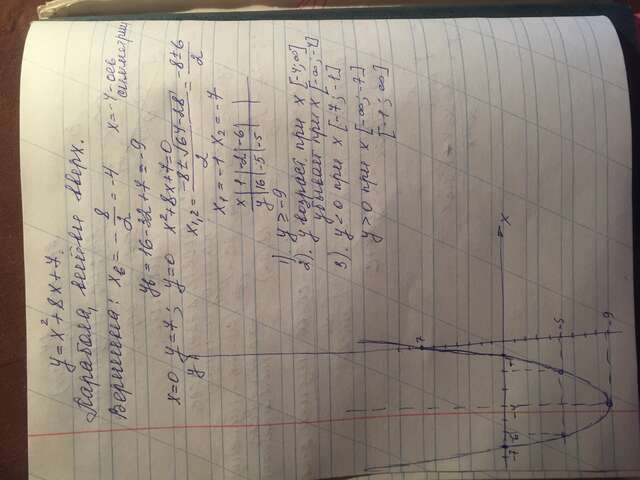 y = x² + 8x + 7.
Парабола, ветви вверх.
Вершина: xв = -8/2 = -4 x = -4 - ось симметрии
yв = 16 - 32 + 7 = -9
x=0 y=7; y=0 x²+8x+7=0
x1,2 = (-8±√64-28)/2 = (-8±6)/2
x1 = -1 x2 = -7
x | 1 | -2 | -6 |
y | 16 | -5 | -5 |
1). y ≥ -9
2). y возраст при x [-4; ∞]
убывает при x [-∞; -4]
3). y < 0 при x [-7; -1]
y > 0 при x [-∞; -7]
[-1; ∞]
y
7
-7 -6 -4 -1 x
-5
-9